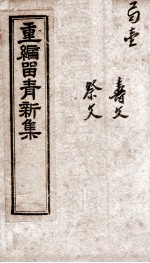 壽文
祭文
重編留青新集